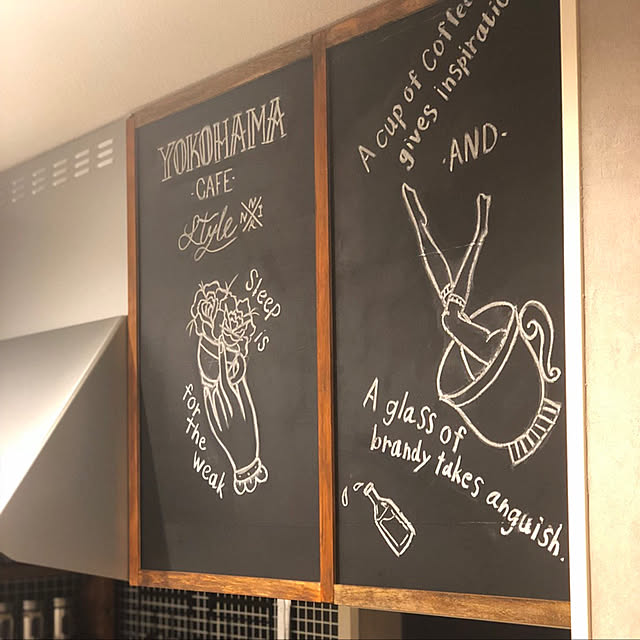 YOKOHAMA
·CAFE·
Style
Sleep is
for the weak
A cup of Coffee
gives inspiration
·AND·
A glass of
brandy takes anguish.